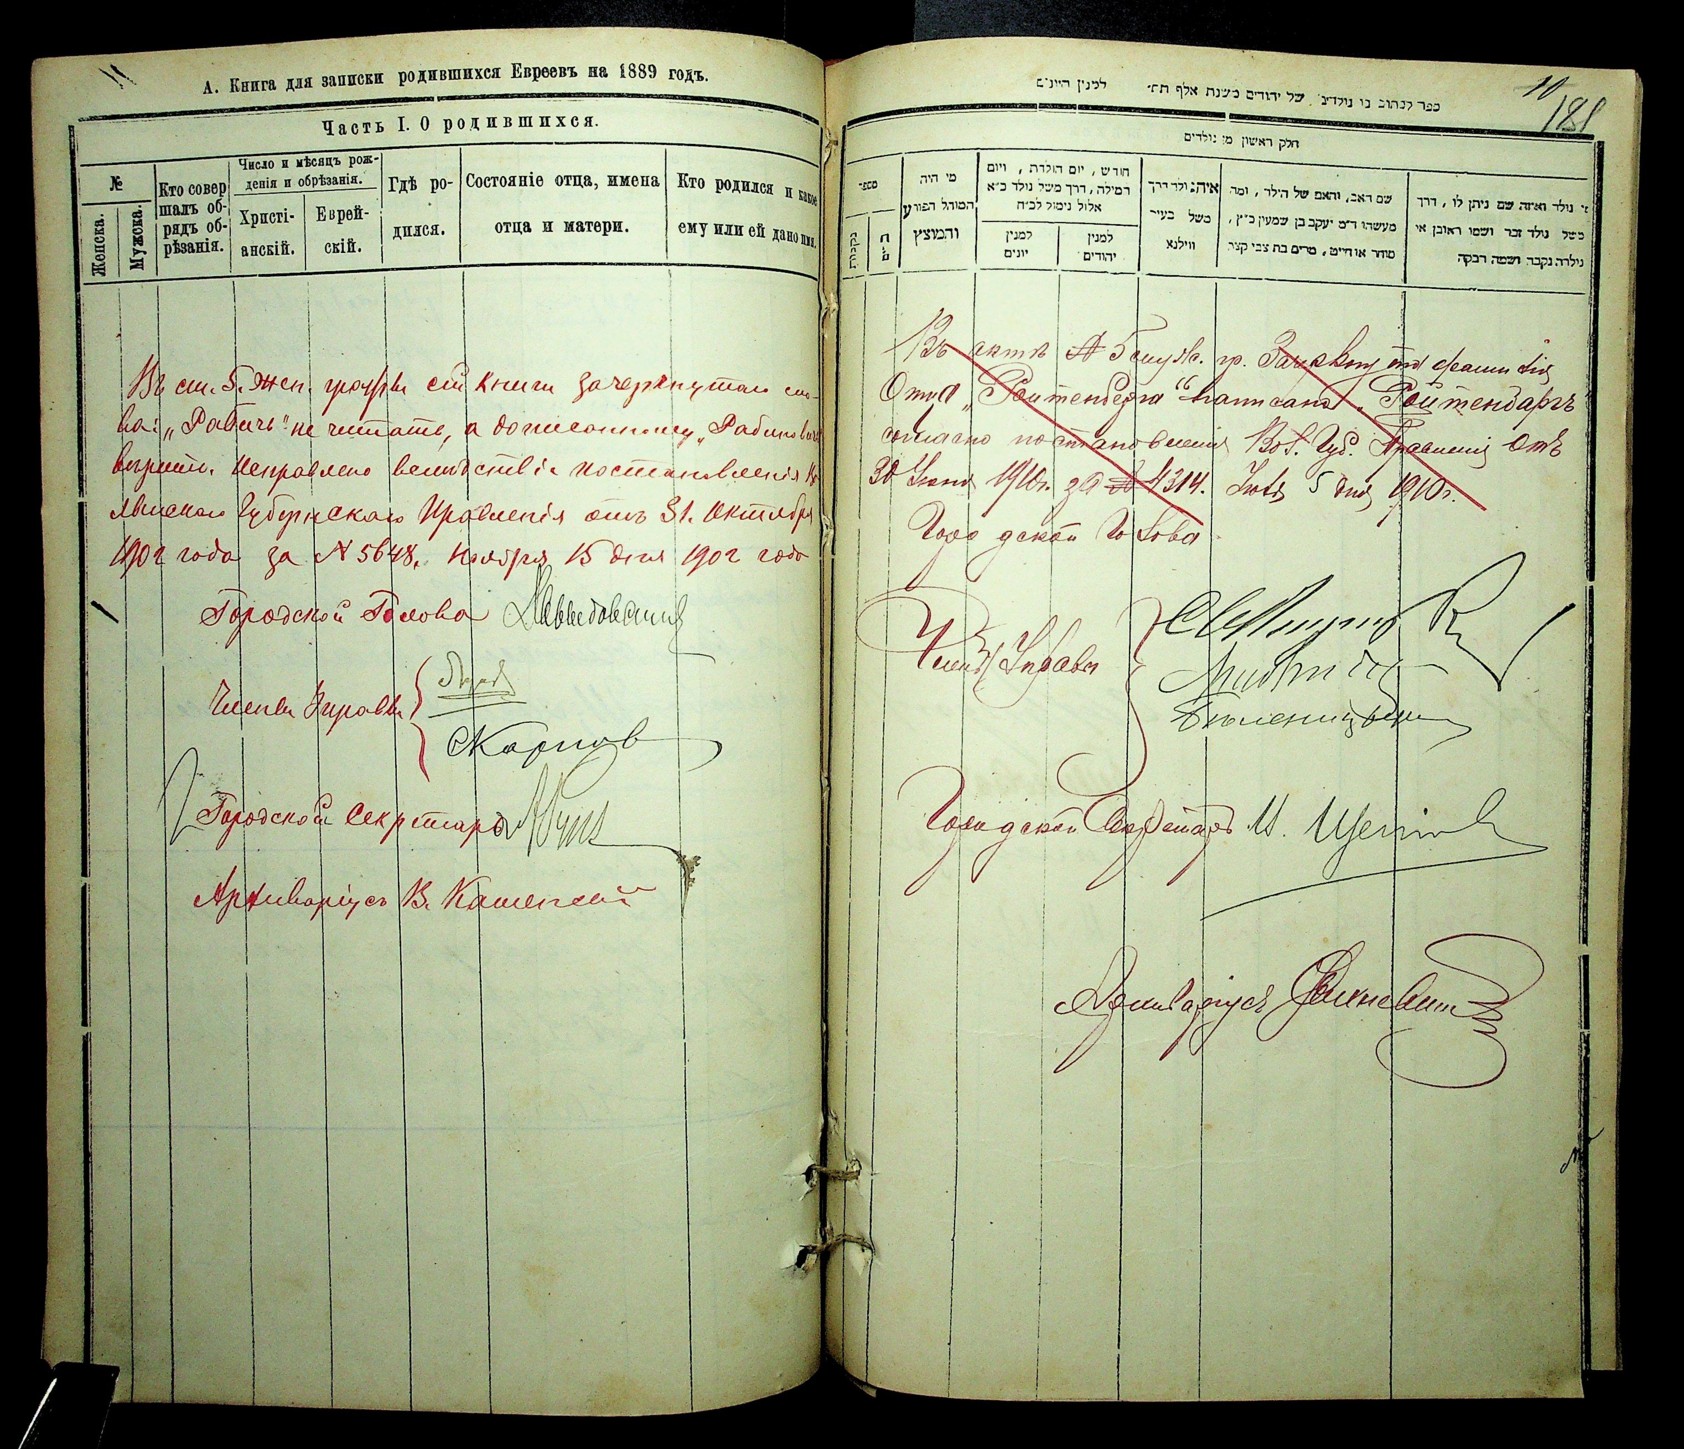 11
А. Книга для записки родившихся Евреевъ на 1889 годъ.
Часть I. О родившихся.
№
Женска.
Мужска.
Кто совер
шалъ об-
рядъ об-
рѣзанія.
Число и мѣсяцъ рож-
денія и обрѣзанія.
Христі-
анскій.
Еврей-
скій.
Гдѣ ро-
дился.
Состояніе отца, имена
отца и матери.
Кто родился и какое
ему или ей дано имя.
Въ ст. 5. жен. графы сей книги зачеркнутаго сло-
ва: „Рабичъ" не читать, а дописанному „Рабиновичъ"
верить. Исправлено вслѣдствіе постановленія
Губернскаго Правленія отъ 31. Октября
1902 года за № 5648. Ноября 15 дня 1902 года
Городской Голова
Члены Управы
Карпов
Городской Секретарь
Архиваріусъ В. Каменскій
10
181
ספר לכתוב בו נולדים של יהודים משנת אלף תת״ למנין היונים
חלק ראשון מן נולדים
מספר
נקבות
מי היה
המוהל הפורע
והמוצץ
חודש, יום הולדת, ויום
המילה, דרך משל נולד כ״א
אלול נימול לכ״ח
למנין
יונים
למנין
יהודים
איה נולד דרך
משל בעיר
ווילנא
שם האב, והאם של הילד, ומה
מעשהו ד״מ יעקב בן שמעון כ״ץ,
סוחר או חייט, מרים בת צבי קצב
מי נולד ואיזה שם ניתן לו, דרך
משל נולד זכר ושמו ראובן או
נולדה נקבה ושמה רבקה
Въ актѣ № 5 муж. гр. фамилія
Отца „Ройтенберга" написано „Ройтенбаргъ"
согласно постановленія Вол. Губ. Правленія отъ
30 Іюня 1910г. за № 4314. Іюля 5 дня 1910г.
Городской Голова
Члены Управы
Городской Секретарь И.
Архиваріусъ